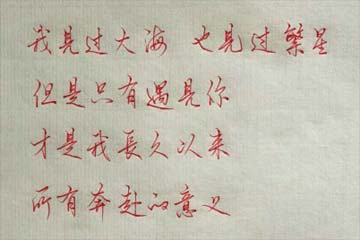 我见过大海 也见过繁星
但是只有遇见你
才是我长久以来
所有奔赴的意义